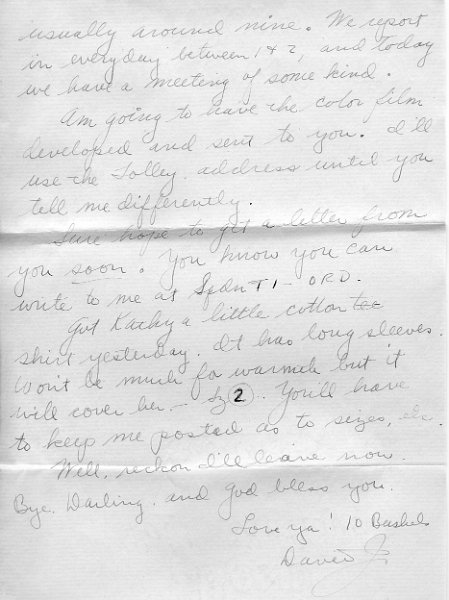 usually around nine. We report
in everyday between 1 & 2, and today
we have a meeting of some kind.
Am going to have the color film
developed and sent to you. I'll
use the Tolley address until you
tell me differently.
Sure hope to get a letter from
you soon. You know you can
write to me at SqdnT1 - ORD.
Got Kathy a little cotton tee
shirt yesterday. It has long sleeves.
Won't be much for warmth but it
will cover her. - Sz 2. You'll have
to keep me posted as to sizes, etc.
Well, reckon I'll leave now.
Bye, Darling, and God bless you.
Love ya! 10 Bushels
David J.